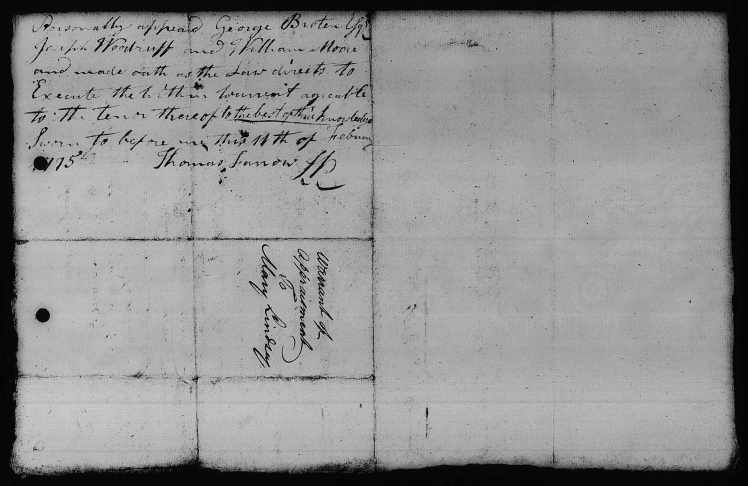 Personally appeard George Bruten Esqr
Joseph Woodruff and William Moore
and made oath as the Law directs to
Execute the within warrant agreable
to the tenor thereof to the best of their knowledge
Sworn to before me this 11th of Februay
1775 Thomas Farrow JP
Warrant of
Appraisment
To
Mary Lindsey